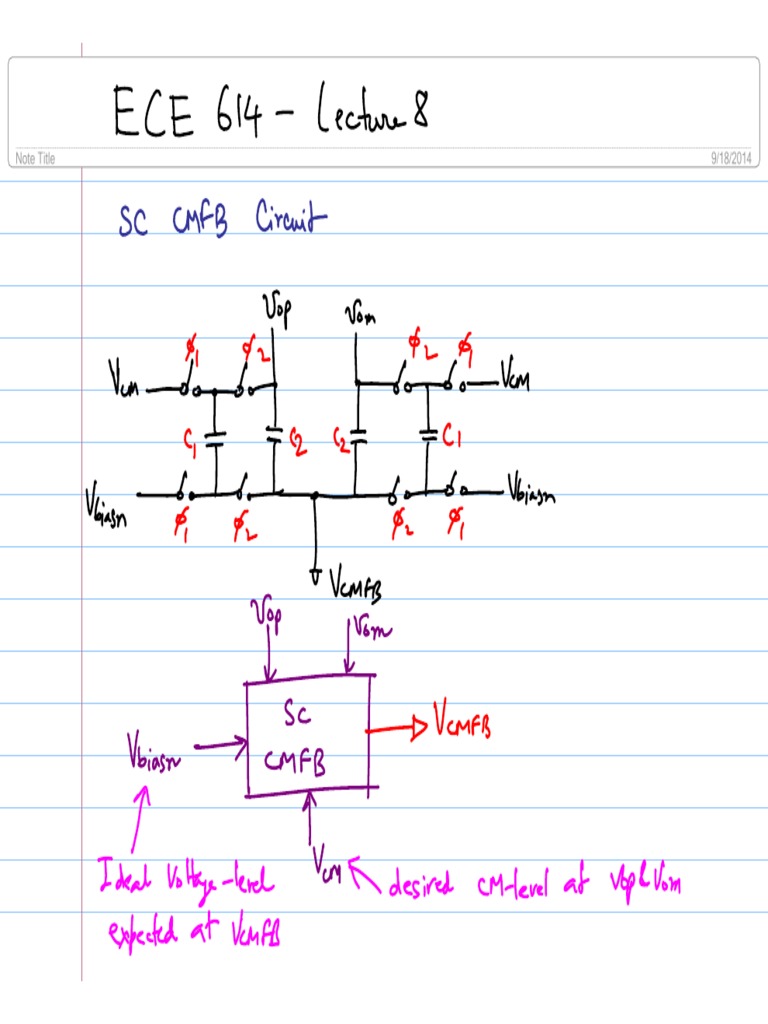 ECE 614 - Lecture 8
Note Title
9/18/2014
SC CMFB Circuit
Vop Vom
ϕ1 ϕ2 ϕ2 ϕ1
VCM VCM
C1 C2 C2 C1
Vbiasn Vbiasn
ϕ1 ϕ2 ϕ2 ϕ1
VCMFB
Vop Vom
SC
CMFB
VCMFB
Vbiasn
VCM
Ideal Voltage-level
expected at VCMFB
desired CM-level at Vop & Vom